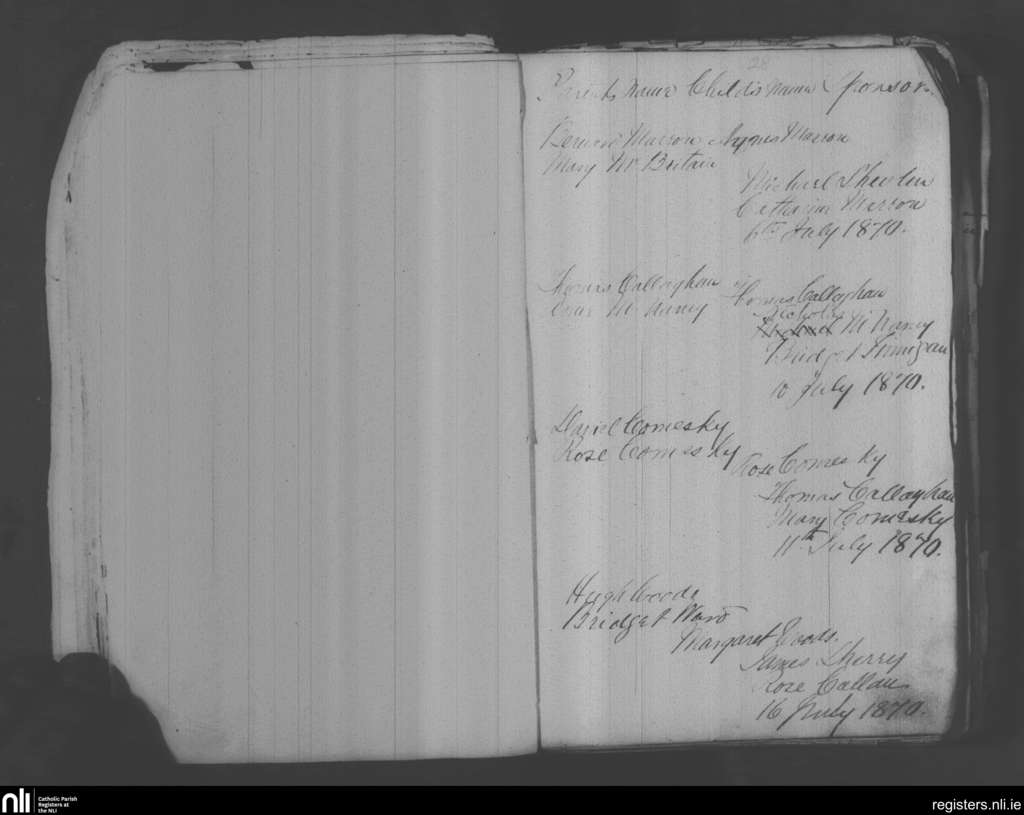 28
Parents name Childs name Sponsors
Bernard Marron Agnes Marron
Mary McBritain
Michael Shevlin
Catharine Marron
6th July 1870.
Thomas Callaghan Thomas Callaghan
Rose McNaney
Nicholas
McNaney
Bridget Finnigan
10 July 1870.
Daniel Comesky
Rose Comesky Rose Comesky
Thomas Callaghan
Mary Comesky
11th July 1870.
Hugh Woods
Bridget Ward
Margaret Woods.
James Sherry
Rose Callan
16 July 1870.
nli Catholic Parish
Registers at
the NLI
registers.nli.ie